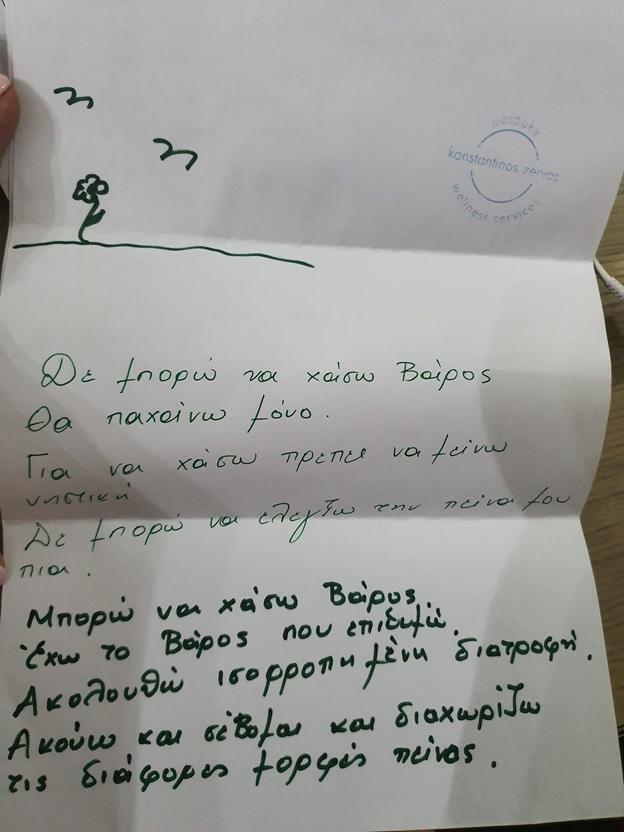 bespoke
konstantinos zervas
wellness services
Δε μπορώ να χάσω Βάρος
Θα παχαίνω μόνο.
Για να χάσω πρεπει να μείνω
νηστική
Δε μπορώ να ελεγξω την πείνα μου
πια.
Μπορώ να χάσω Βάρος.
Έχω το Βάρος που επιθυμώ.
Ακολουθώ ισορροπημένη διατροφή.
Ακούω και σέβομαι και διαχωρίζω
τις διάφορες μορφές πείνας.